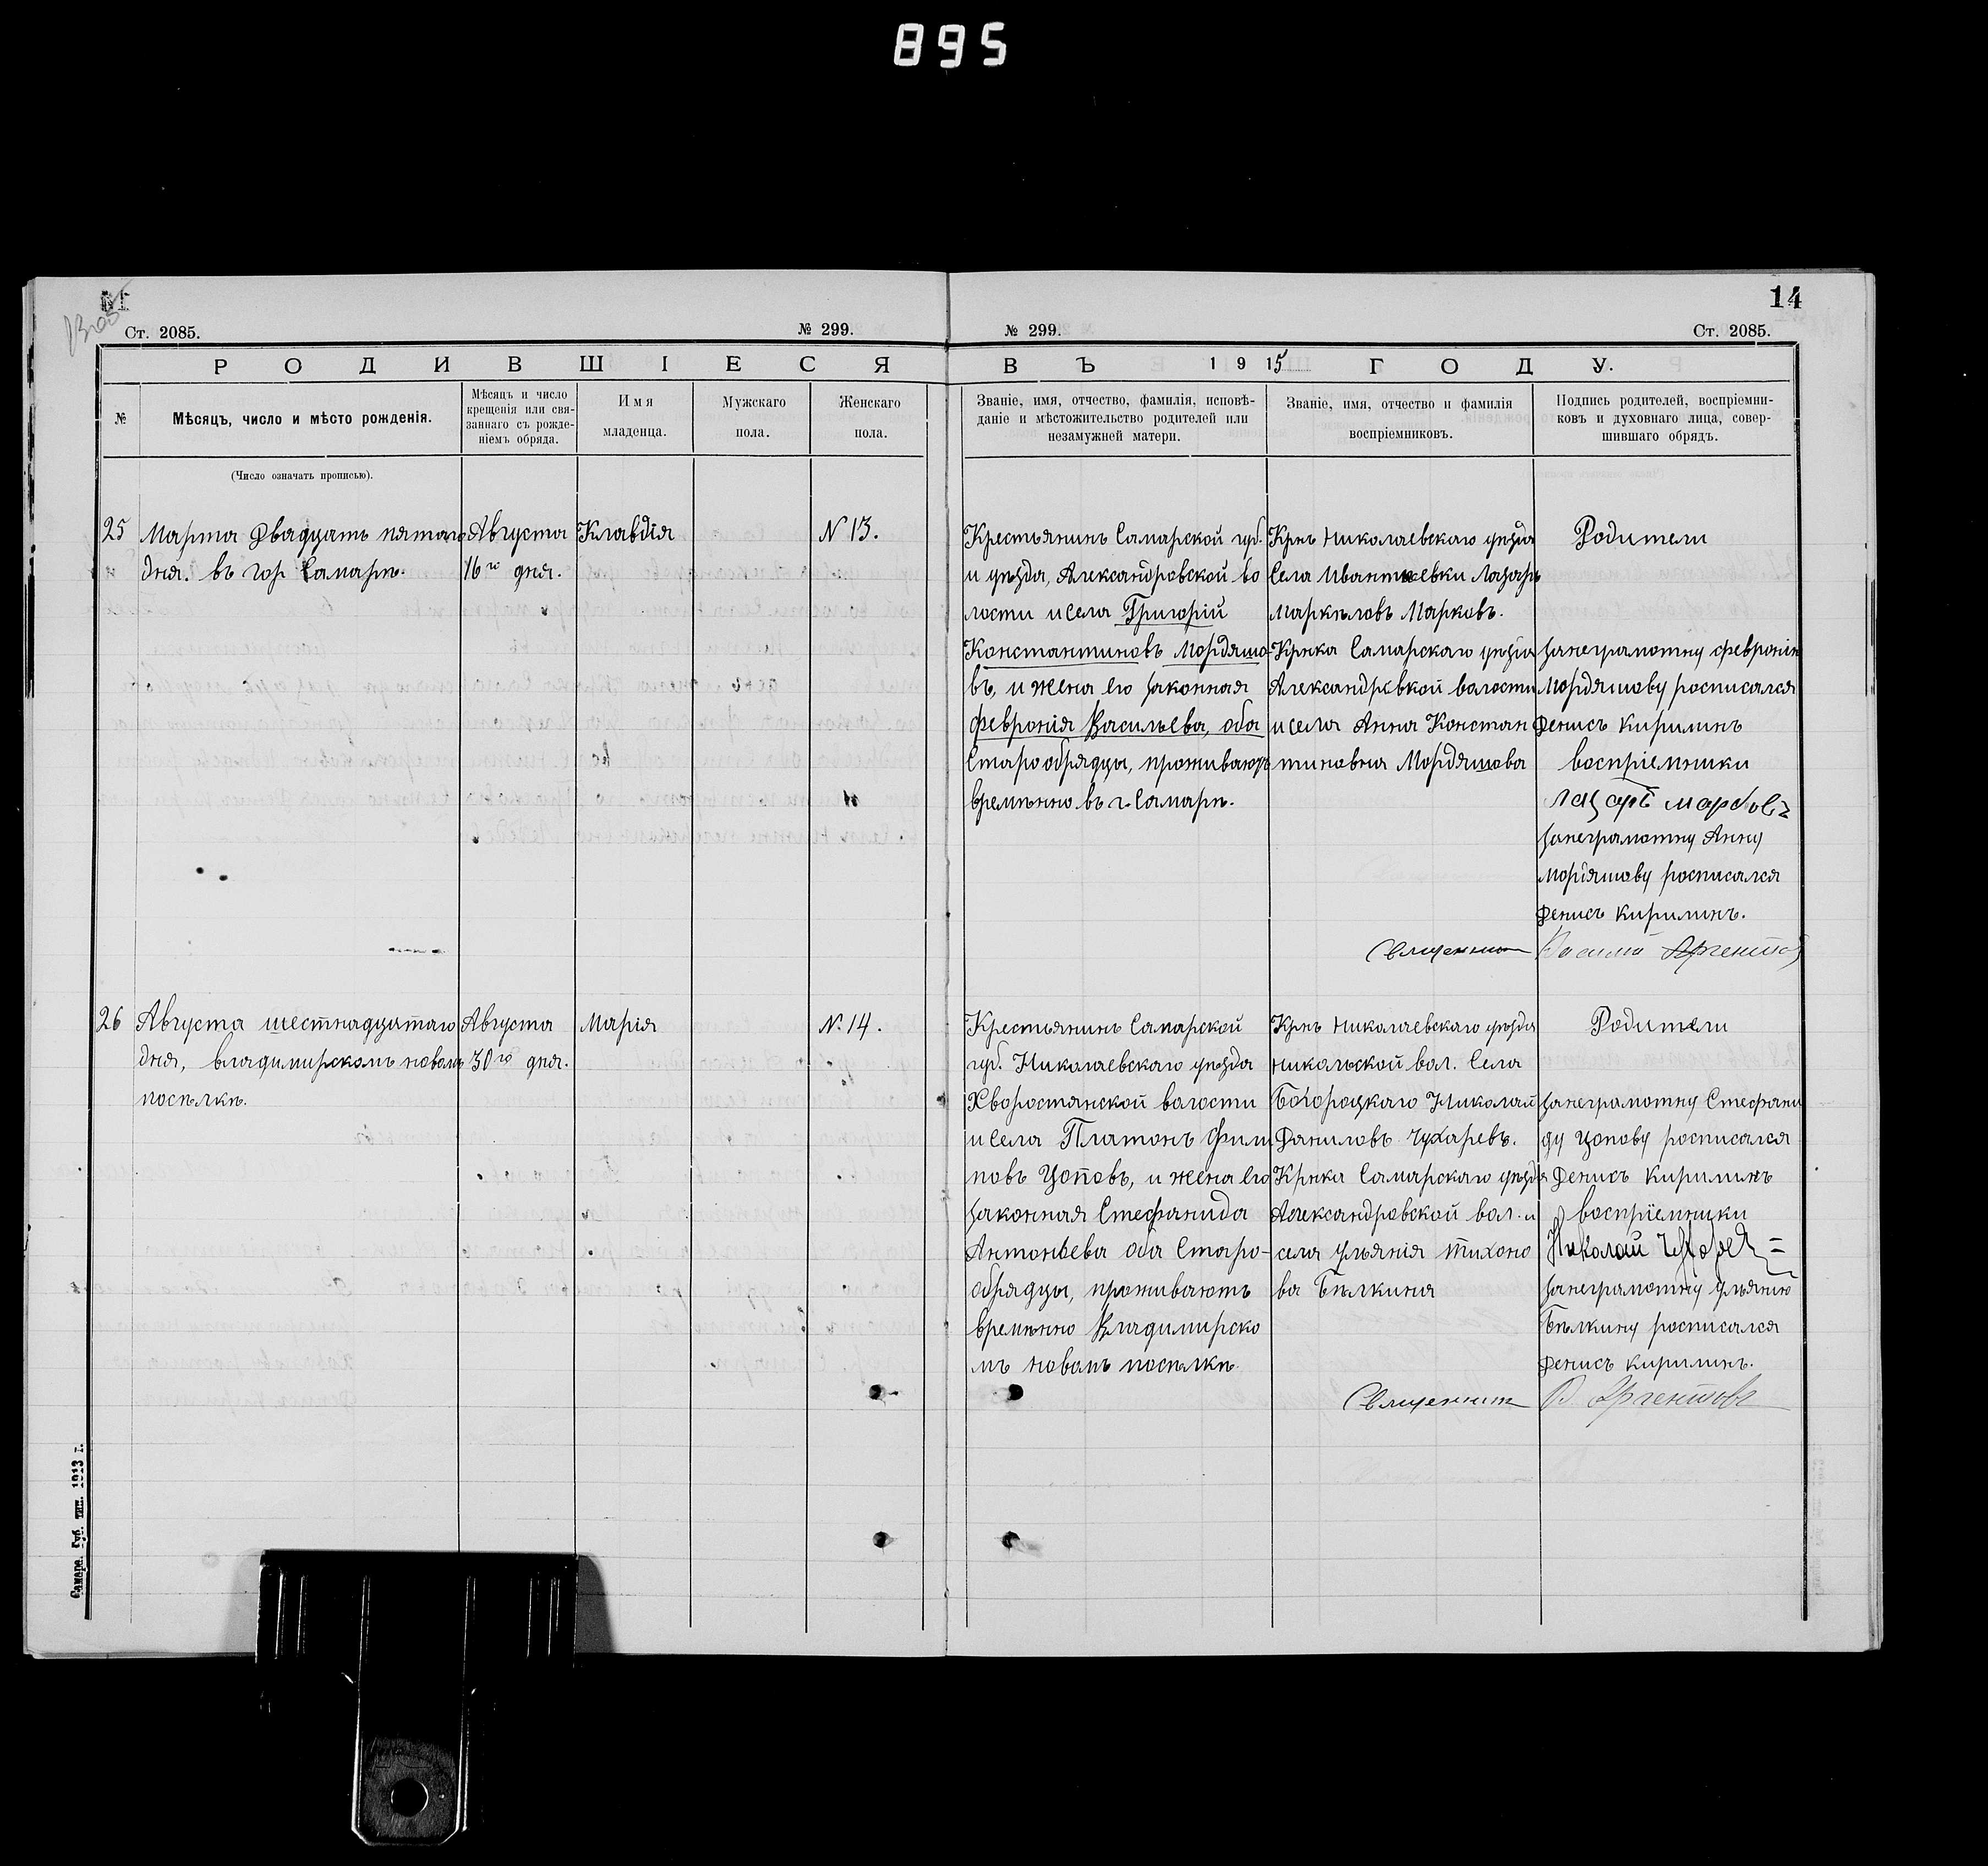 895
14
Ст. 2085.
№ 299.
№ 299.
Ст. 2085.
РОДИВШІЕСЯ
ВЪ 1915 ГОДУ.
№
Мѣсяцъ, число и мѣсто рожденія.
(Число означать прописью).
Мѣсяцъ и число
крещенія или свя-
заннаго съ рожде-
ніемъ обряда.
Имя
младенца.
Мужскаго
пола.
Женскаго
пола.
Званіе, имя, отчество, фамилія, исповѣ-
даніе и мѣстожительство родителей или
незамужней матери.
Званіе, имя, отчество и фамилія
воспріемниковъ.
Подпись родителей, воспріемни-
ковъ и духовнаго лица, совер-
шившаго обрядъ.
25
Марта Двадцать пятаго
дня. въ гор Самарѣ.
Августа
16го дня.
Клавдія
N 13.
Крестьянинъ Самарской губ.
и уѣзда, Александровской во
лости и села Григорій
Константиновъ Мордяшо-
въ, и жена его законная
Февронія Васильева, оба
Старообрядцы, проживают
времѣнно въ г. Самарѣ.
Крнъ Николаевскаго уѣзда
Села Ивантеевки Лазарь
Маркѣловъ Марковъ.
Крнка Самарскаго уѣзда
Александрвкой волости
и села Анна Констан
тиновна Мордяшова
Родители
Занеграмотну Февронію
Мордяшову росписался
Денисъ Кирилинъ
воспріемники
Лазарь Марковъ
Занеграмотну Анну
Мордяшову росписался
Денисъ Кирилинъ.
Священник Василий Аргентов
26
Августа шестнадцатаго
дня, владимирскомъ новомъ
посѣлкѣ.
Августа
30го дня.
Марія
N. 14.
Крестьянинъ Самарской
губ. Николаевскаго уѣзда
Хворостянской волости
и села Платонъ Фили
повъ Цоповъ, и жена его
законная Стефанида
Антоньева оба Старо-
обрядцы, проживаютъ
времѣнно Владимирско
мъ новомъ посѣлкѣ.
Крнъ Николаевскаго уѣзда
Никольской вол. Села
Богородцкаго Николай
Даниловъ Чухаревъ.
Крнка Самарскаго уѣзда
Александровской вол. и
села Ульянія Тихоно
ва Бѣлкина
Родители
Занеграмотну Стефани
ду Цопову росписался
Денисъ Кирилинъ
воспріемники
Николай Чухарев
Занеграмотну Ульянію
Бѣлкину росписался
Денисъ Кирилинъ.
Священник В. Аргентовъ
Самара. Губ. тип. 1913 г.